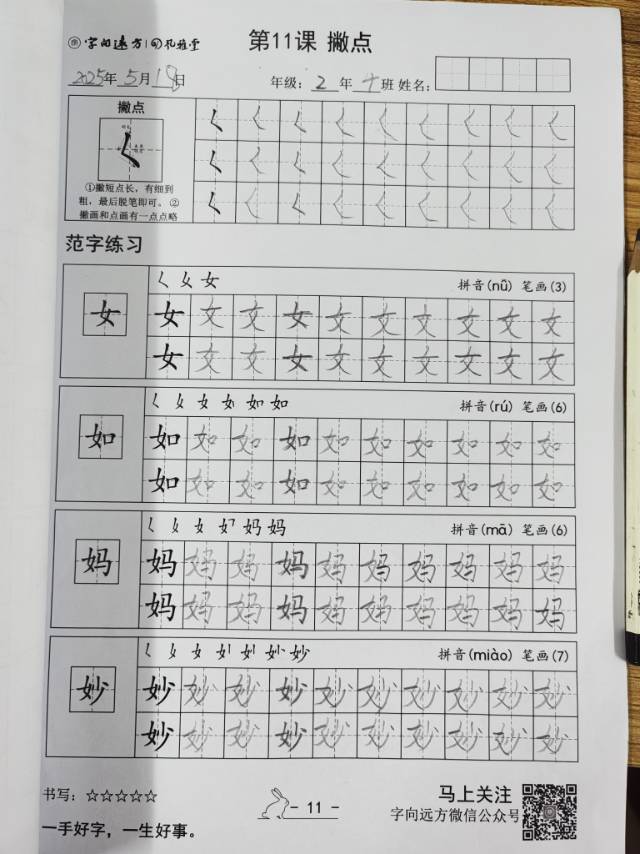 字向远方 孔雅堂
第11课 撇点
2025年5月18日
年级：2年 班 姓名：
撇点
①撇短点长，有细到
粗，最后脱笔即可。②
撇画和点画有一点点略
范字练习
𡿨 女 女
拼音(nǚ) 笔画(3)
女 女 女 女 女 女 女 女 女 女 女
女 女 女 女 女 女 女 女 女 女
拼音(rú) 笔画(6)
如 如 如 如 如 如 如 如 如 如 如
如 如 如 如 如 如 如 如 如 如
拼音(mā) 笔画(6)
妈 妈 妈 妈 妈 妈 妈 妈 妈 妈 妈
妈 妈 妈 妈 妈 妈 妈 妈 妈 妈
拼音(miào) 笔画(7)
妙 妙 妙 妙 妙 妙 妙 妙 妙 妙 妙
妙 妙 妙 妙 妙 妙 妙 妙 妙 妙
书写：☆☆☆☆☆
- 11 -
马上关注
字向远方微信公众号
一手好字，一生好事。